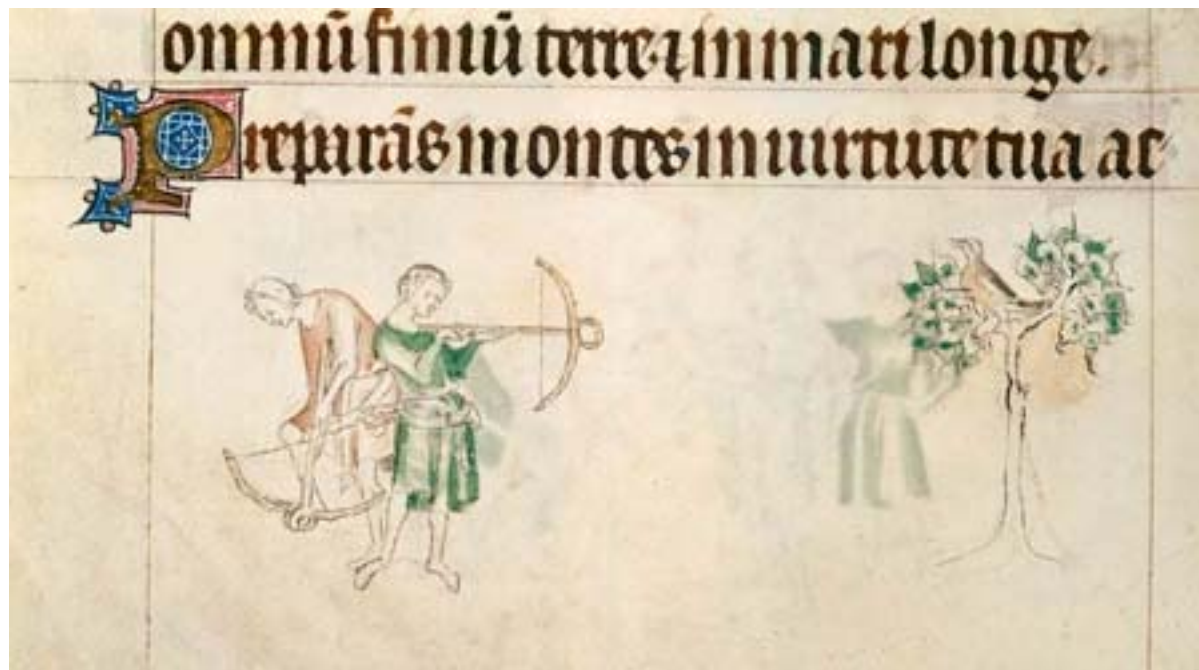 omniū finiū terre ⁊ in mari longe.
Preparās montes in uirtute tua ac